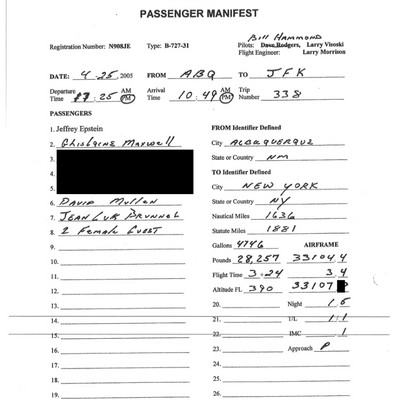 PASSENGER MANIFEST
Bill Hammond
Registration Number: N908JE Type: B-727-31 Pilots: Dave Rodgers, Larry Visoski
Flight Engineer: Larry Morrison
DATE: 4.25, 2005 FROM ABQ TO JFK
Departure Time 25 AM PM Arrival Time 10:49 AM PM Trip Number 338
PASSENGERS
1. Jeffrey Epstein FROM Identifier Defined
2. Ghislaine Maxwell City ALBUQUERQUE
3. State or Country NM
4. TO Identifier Defined
5. City NEW YORK
6. David Mullen State or Country NY
7. JEAN LUK BRUNNEL Nautical Miles 1636
8. 2 Female Guest Statute Miles 1881
9. Gallons 4746 AIRFRAME
10. Pounds 28,257 33104.4
11. Flight Time 3+24 3.4
12. Altitude FL 390 33107
13. 20. Night 1.5
14. 21. T/L 1:1
15. 22. IMC .1
16. 23. Approach P
17. 24.
18. 25.
19. 26.